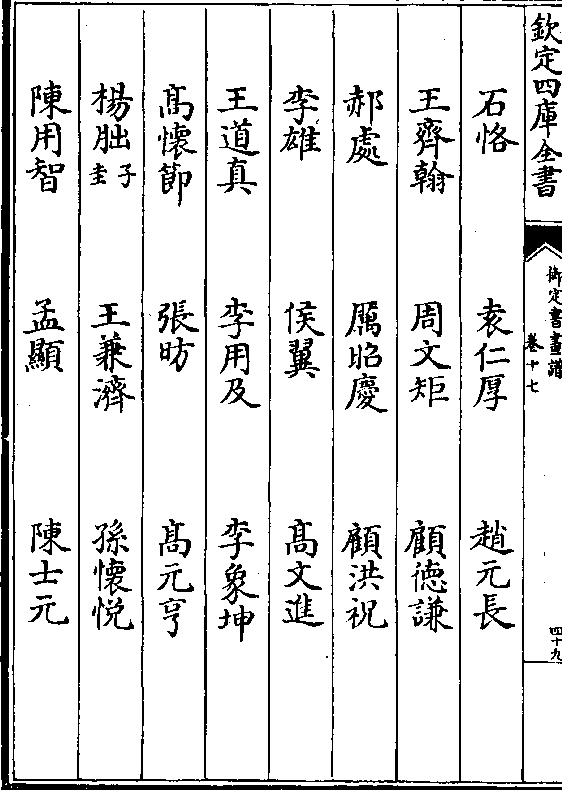 欽定四庫全書
御定書畫譜
卷十七
四十九
石恪 袁仁厚 趙元長
王齊翰 周文矩 顧德謙
郝處 厲昭慶 顧洪祝
李雄 侯翼 髙文進
王道真 李用及 李象坤
髙懷節 張昉 髙元亨
楊朏子圭 王兼濟 孫懷悦
陳用智 孟顯 陳士元